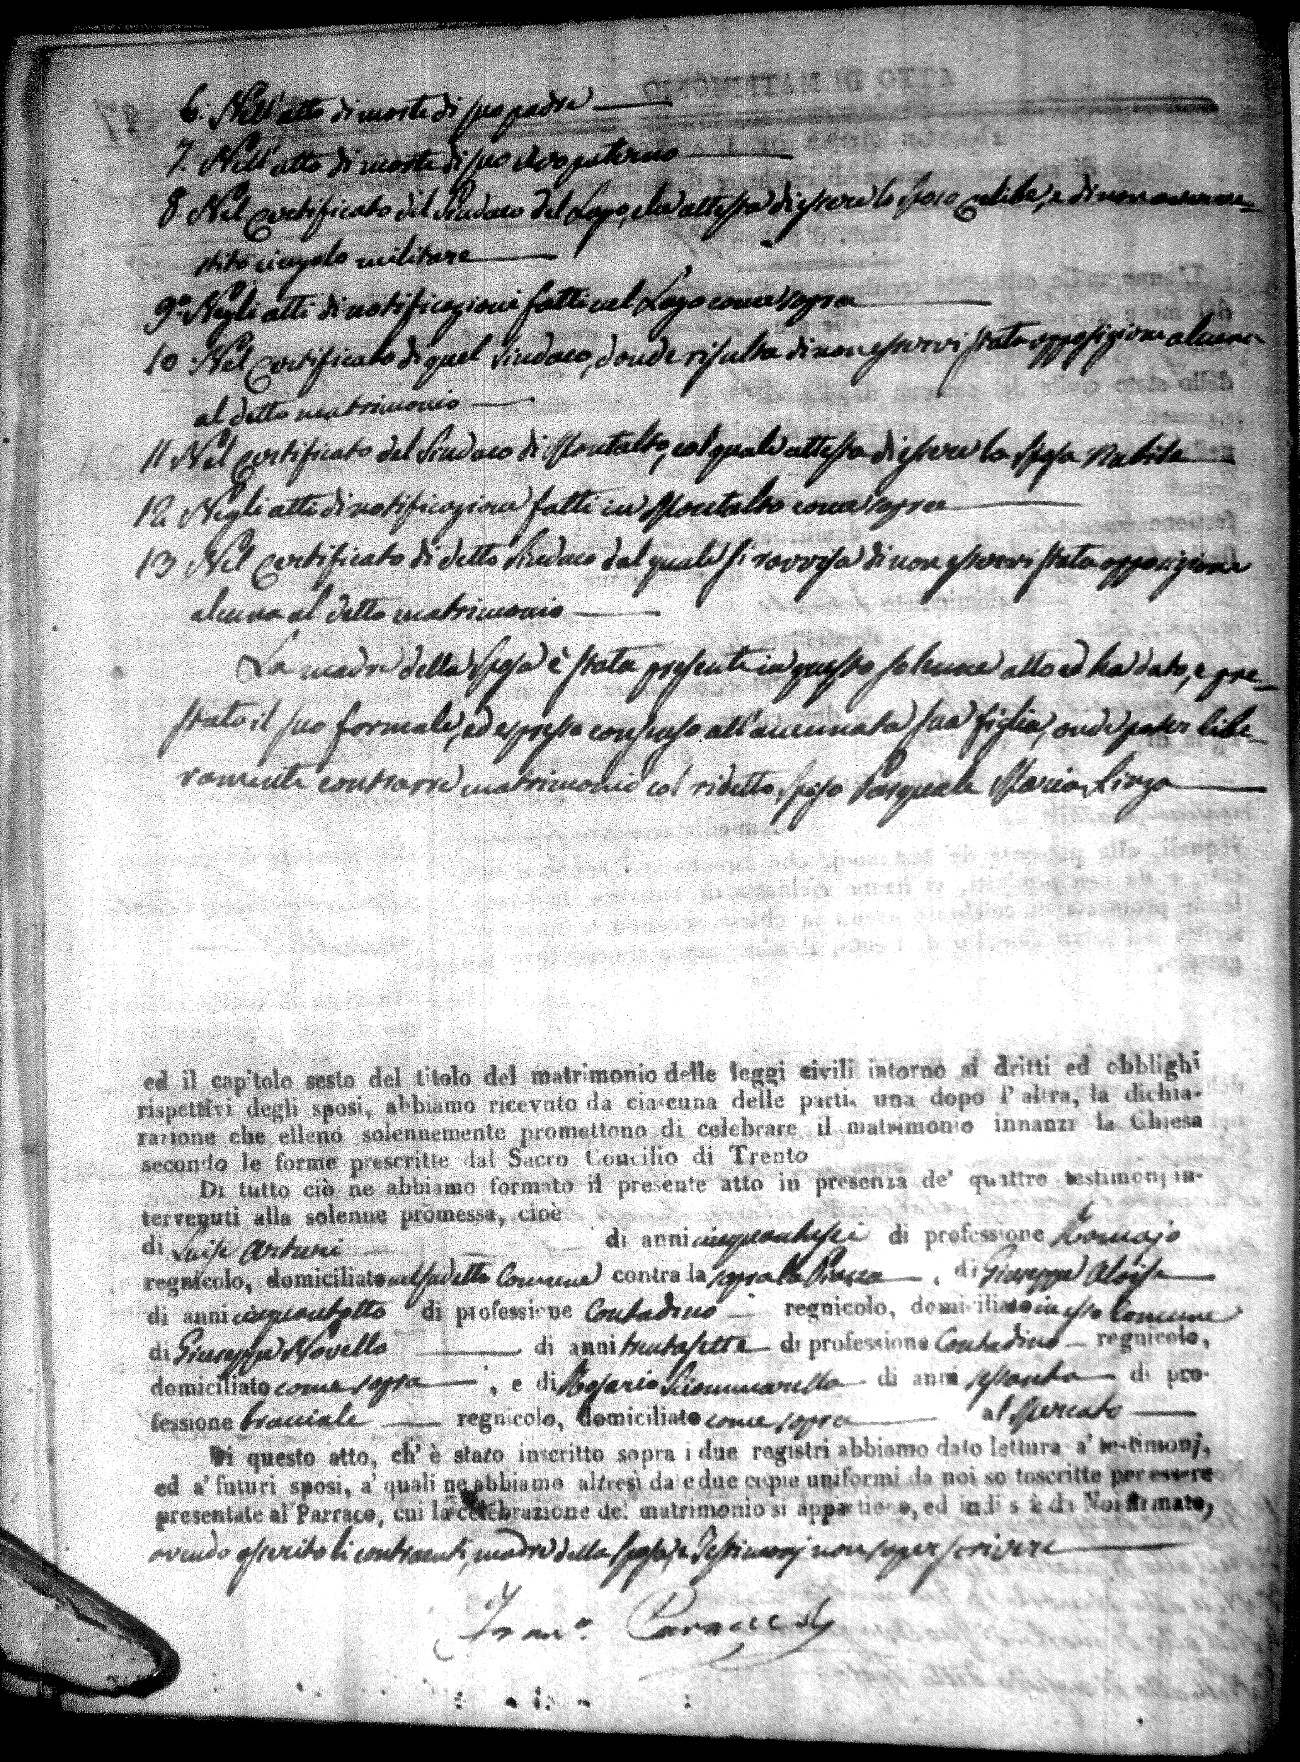 6. Nell'atto di morte di suo padre
7. Nell'atto di morte di suo avo paterno
8 Nel Certificato del Sindaco del Lago, che attesta di essere lo sposo celibe, e di non avere ve-
stito cingolo militare
9° Negli atti di notificazioni fatti nel Lago come sopra
10. Nel Certificato di quel Sindaco, donde risulta di non esservi stata opposizione alcuna
al detto matrimonio
11 Nel Certificato del Sindaco di Montalto, col quale attesta di essere la sposa nubile
12. Negli atti di notificazioni fatti in Montalto come sopra
13 Nel Certificato di detto Sindaco dal quale si ravvisa di non esservi stata opposizione
alcuna al detto matrimonio
La madre della sposa è stata presente in questo solenne atto ed ha dato, e pre-
stato il suo formale, ed espresso consenso all'accennata sua figlia, onde poter libe-
ramente contrarre matrimonio col ridetto sposo Pasquale Maria
ed il capitolo sesto del titolo del matrimonio delle leggi civili intorno ai dritti ed obblighi
rispettivi degli sposi, abbiamo ricevuto da ciascuna delle parti, una dopo l'altra, la dichia-
razione che elleno solennemente promettono di celebrare il matrimonio innanzi la Chiesa
secondo le forme prescritte dal Sacro Concilio di Trento
Di tutto ciò ne abbiamo formato il presente atto in presenza de' quattro testimonj in-
tervenuti alla solenne promessa, cioè
di Luise Arturi di anni cinquantasei di professione
regnicolo, domiciliato nella detta Comune contra la sopra la Piazza, di Giuseppe Aloise
di anni cinquantotto di professione Contadino regnicolo, domiciliato in esso Comune
di Giuseppe Novello di anni trentasette di professione Contadino regnicolo,
domiciliato come sopra, e di Rosario Sciammarella di anni sessanta di pro-
fessione bracciale regnicolo, domiciliato come sopra al Mercato
Di questo atto, ch' è stato inscritto sopra i due registri abbiamo dato lettura a' testimonj,
ed a' futuri sposi, a' quali ne abbiamo altresì date due copie uniformi da noi sottoscritte per essere
presentate al Parroco, cui la celebrazione del matrimonio si appartiene, ed indi s' è da Noi firmato,
avendo asserito li contraenti, madre della sposa, e Testimonj non saper scrivere